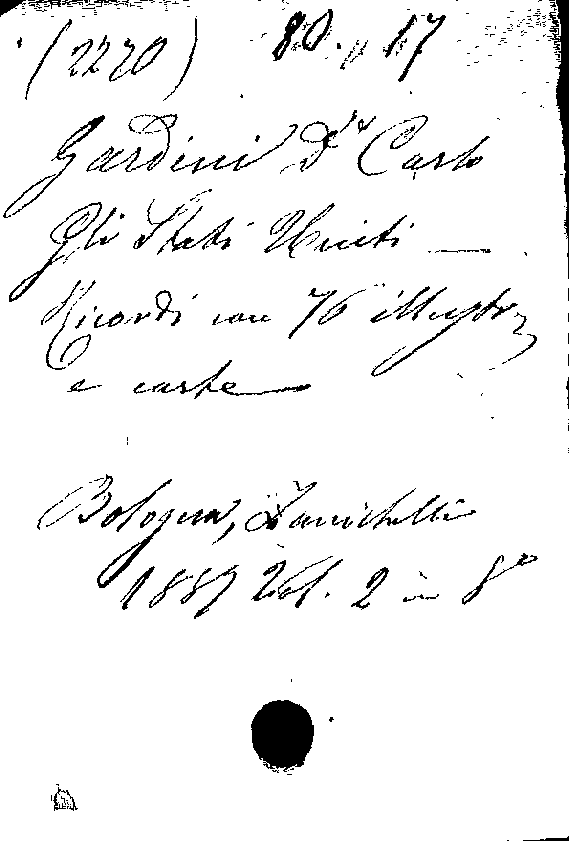 (2220) 80. 17
Gardini Dr. Carlo
Gli Stati Uniti —
Ricordi con 76 illustr.
e carte —
Bologna, Zanichelli
1887 Vol. 2 in 8°